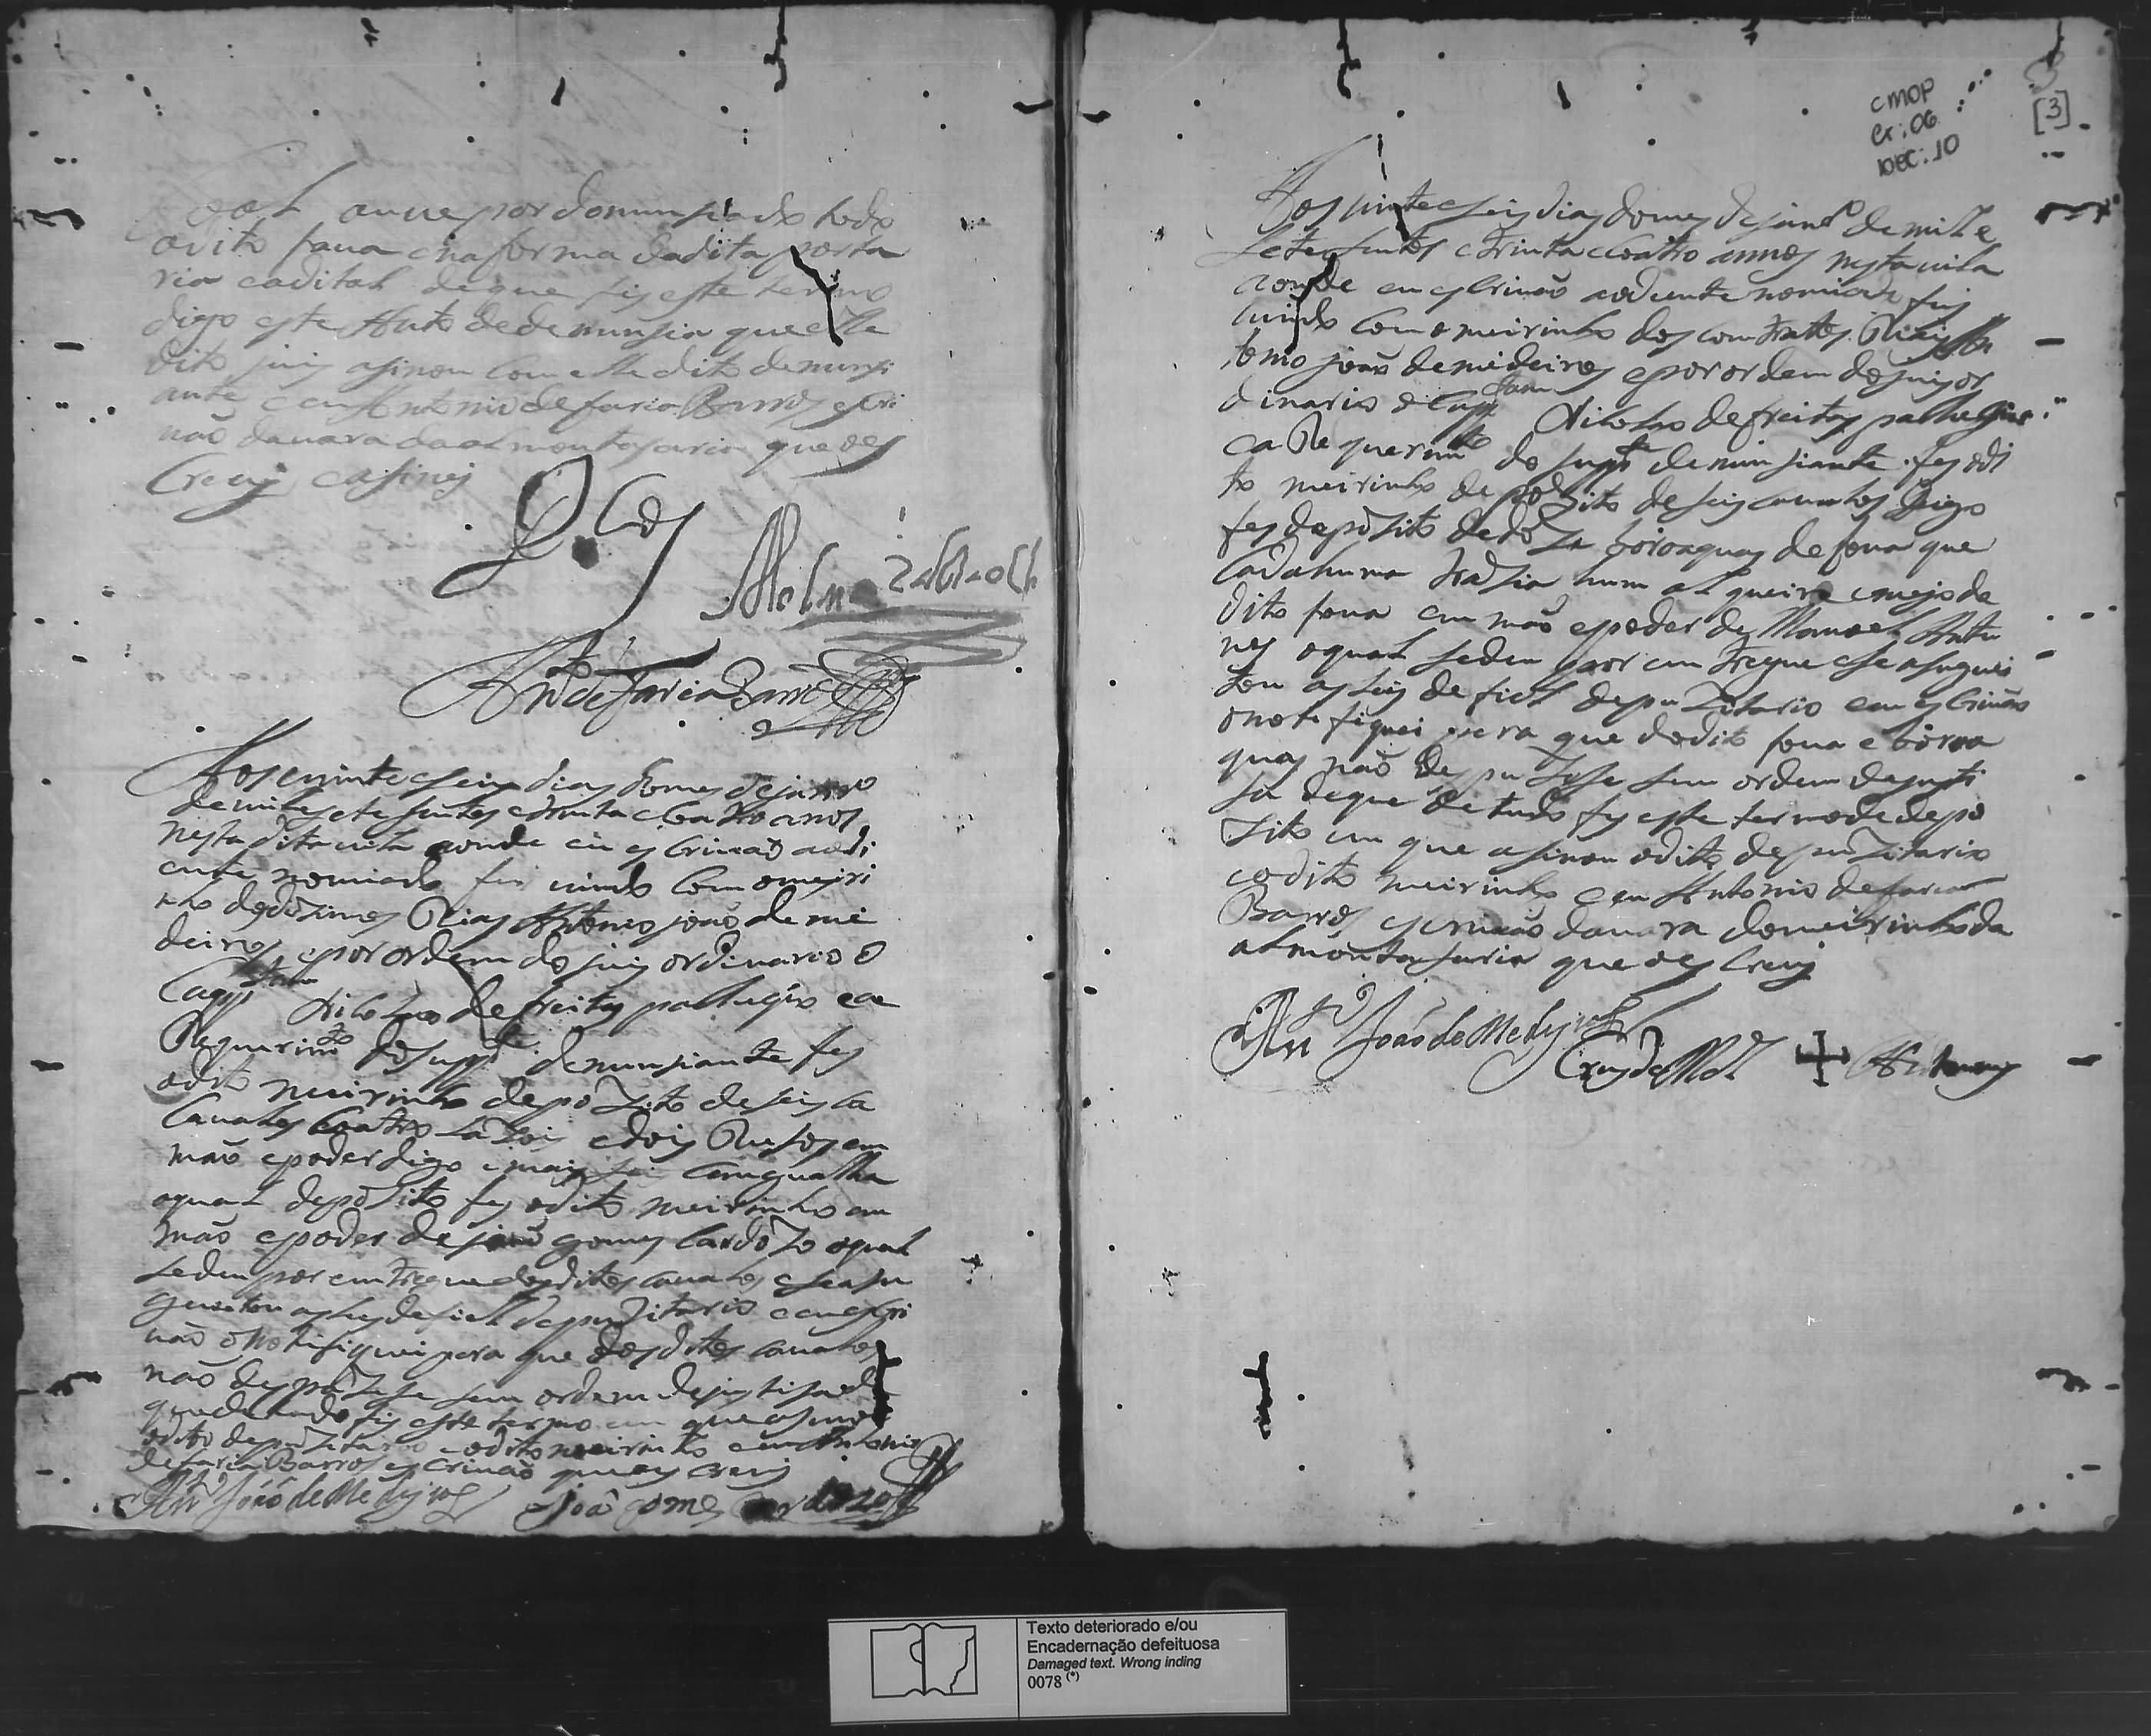 oal ouue por donunsiado todo
o dito faua e na forma da dita porta
ria e adital de que fis este termo
digo este Auto de denunsia que elle
dito juis asinou com elle dito denunsi
ante e eu Antonio de faria Barros escri
uão da uara da almontasaria que o es
creuj e asinej
Anto de Faria Barros
Aos uinte e seis dias do mes de janro
de mil e sete sentos e trinta e coatro anos
nesta dita uila aonde eu escriuão adi
ente nomiado fui uindo com o meiri
nho dos dizimos Riais Antonio joão de me
deiros e por ordem do juis ordinario o
Cappitam de freitas e a
Requerimto do suppte denunsiante fes
o dito meirinho depozito de seis ca
caualos coatro e dois Rusos em
mão e poder digo e mais cangualha
o qual depozito fes o dito meirinho em
mão e poder de joão gomes Cardozo o qual
se deu por emtregue dos ditos caualos e se asu
geitou as leis de fiel depuzitario e eu escri
uão o notifiquei para que dos ditos caualos
não despuzese sem ordem de justisa de
que de tudo fis este termo em que asinou
o dito depuzitario e o dito meirinho e eu Antonio
de faria Barros escriuão que o escreuj
Anto João de Medejros João Gomes Cardozo
CMOP
Cx: 06
DOC: 10
[3]
Aos uinte e seis dias do mes de janro de mil e
sete sentos e trinta e coatro annos nesta uila
aonde eu escriuão adiente nomiado fui
uindo com o meirinho dos comtratos Riais An
tonio joão de medeiros e por ordem do juis or
dinario o Cappitam de freitas
e a Requerimto do suppte denunsiante fes o di
to meirinho depozito de seis caualos digo
fes depozito de doze boroaquas de faua que
cada huma trazia hum alqueire e mejo de
dito faua em mão e poder de Manoel Antu
nes o qual se deu por emtregue e se asugei
tou as leis de fiel depuzitario e eu escriuão
o notefiquei para que do dito faua e boroa
quas não despuzese sem ordem de justi
sa de que de tudo fis este termo de depo
zito em que asinou o dito depuzitario
e o dito meirinho e eu Antonio de faria
Barros escriuão da uara do meirinho da
almontasaria que o escreuj
Anto João de Medejros
Crus de Mel + Antunes
Texto deteriorado e/ou
Encadernação defeituosa
Damaged text. Wrong inding
0078 (*)